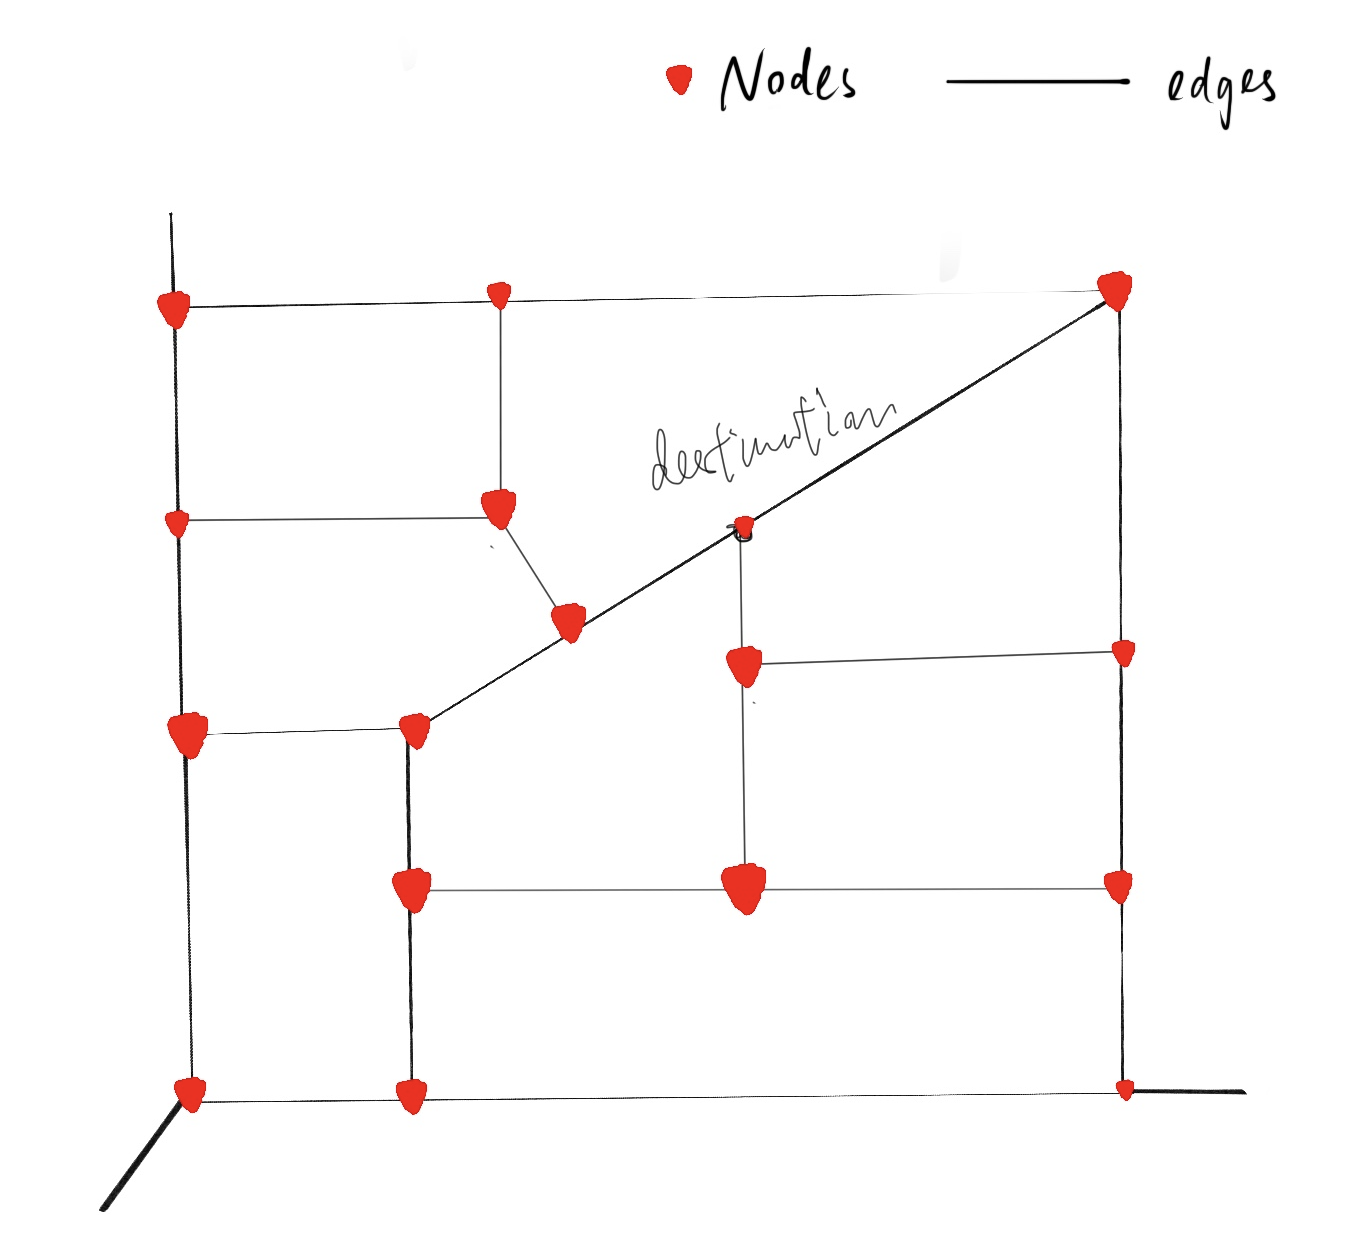 Nodes edges
destination